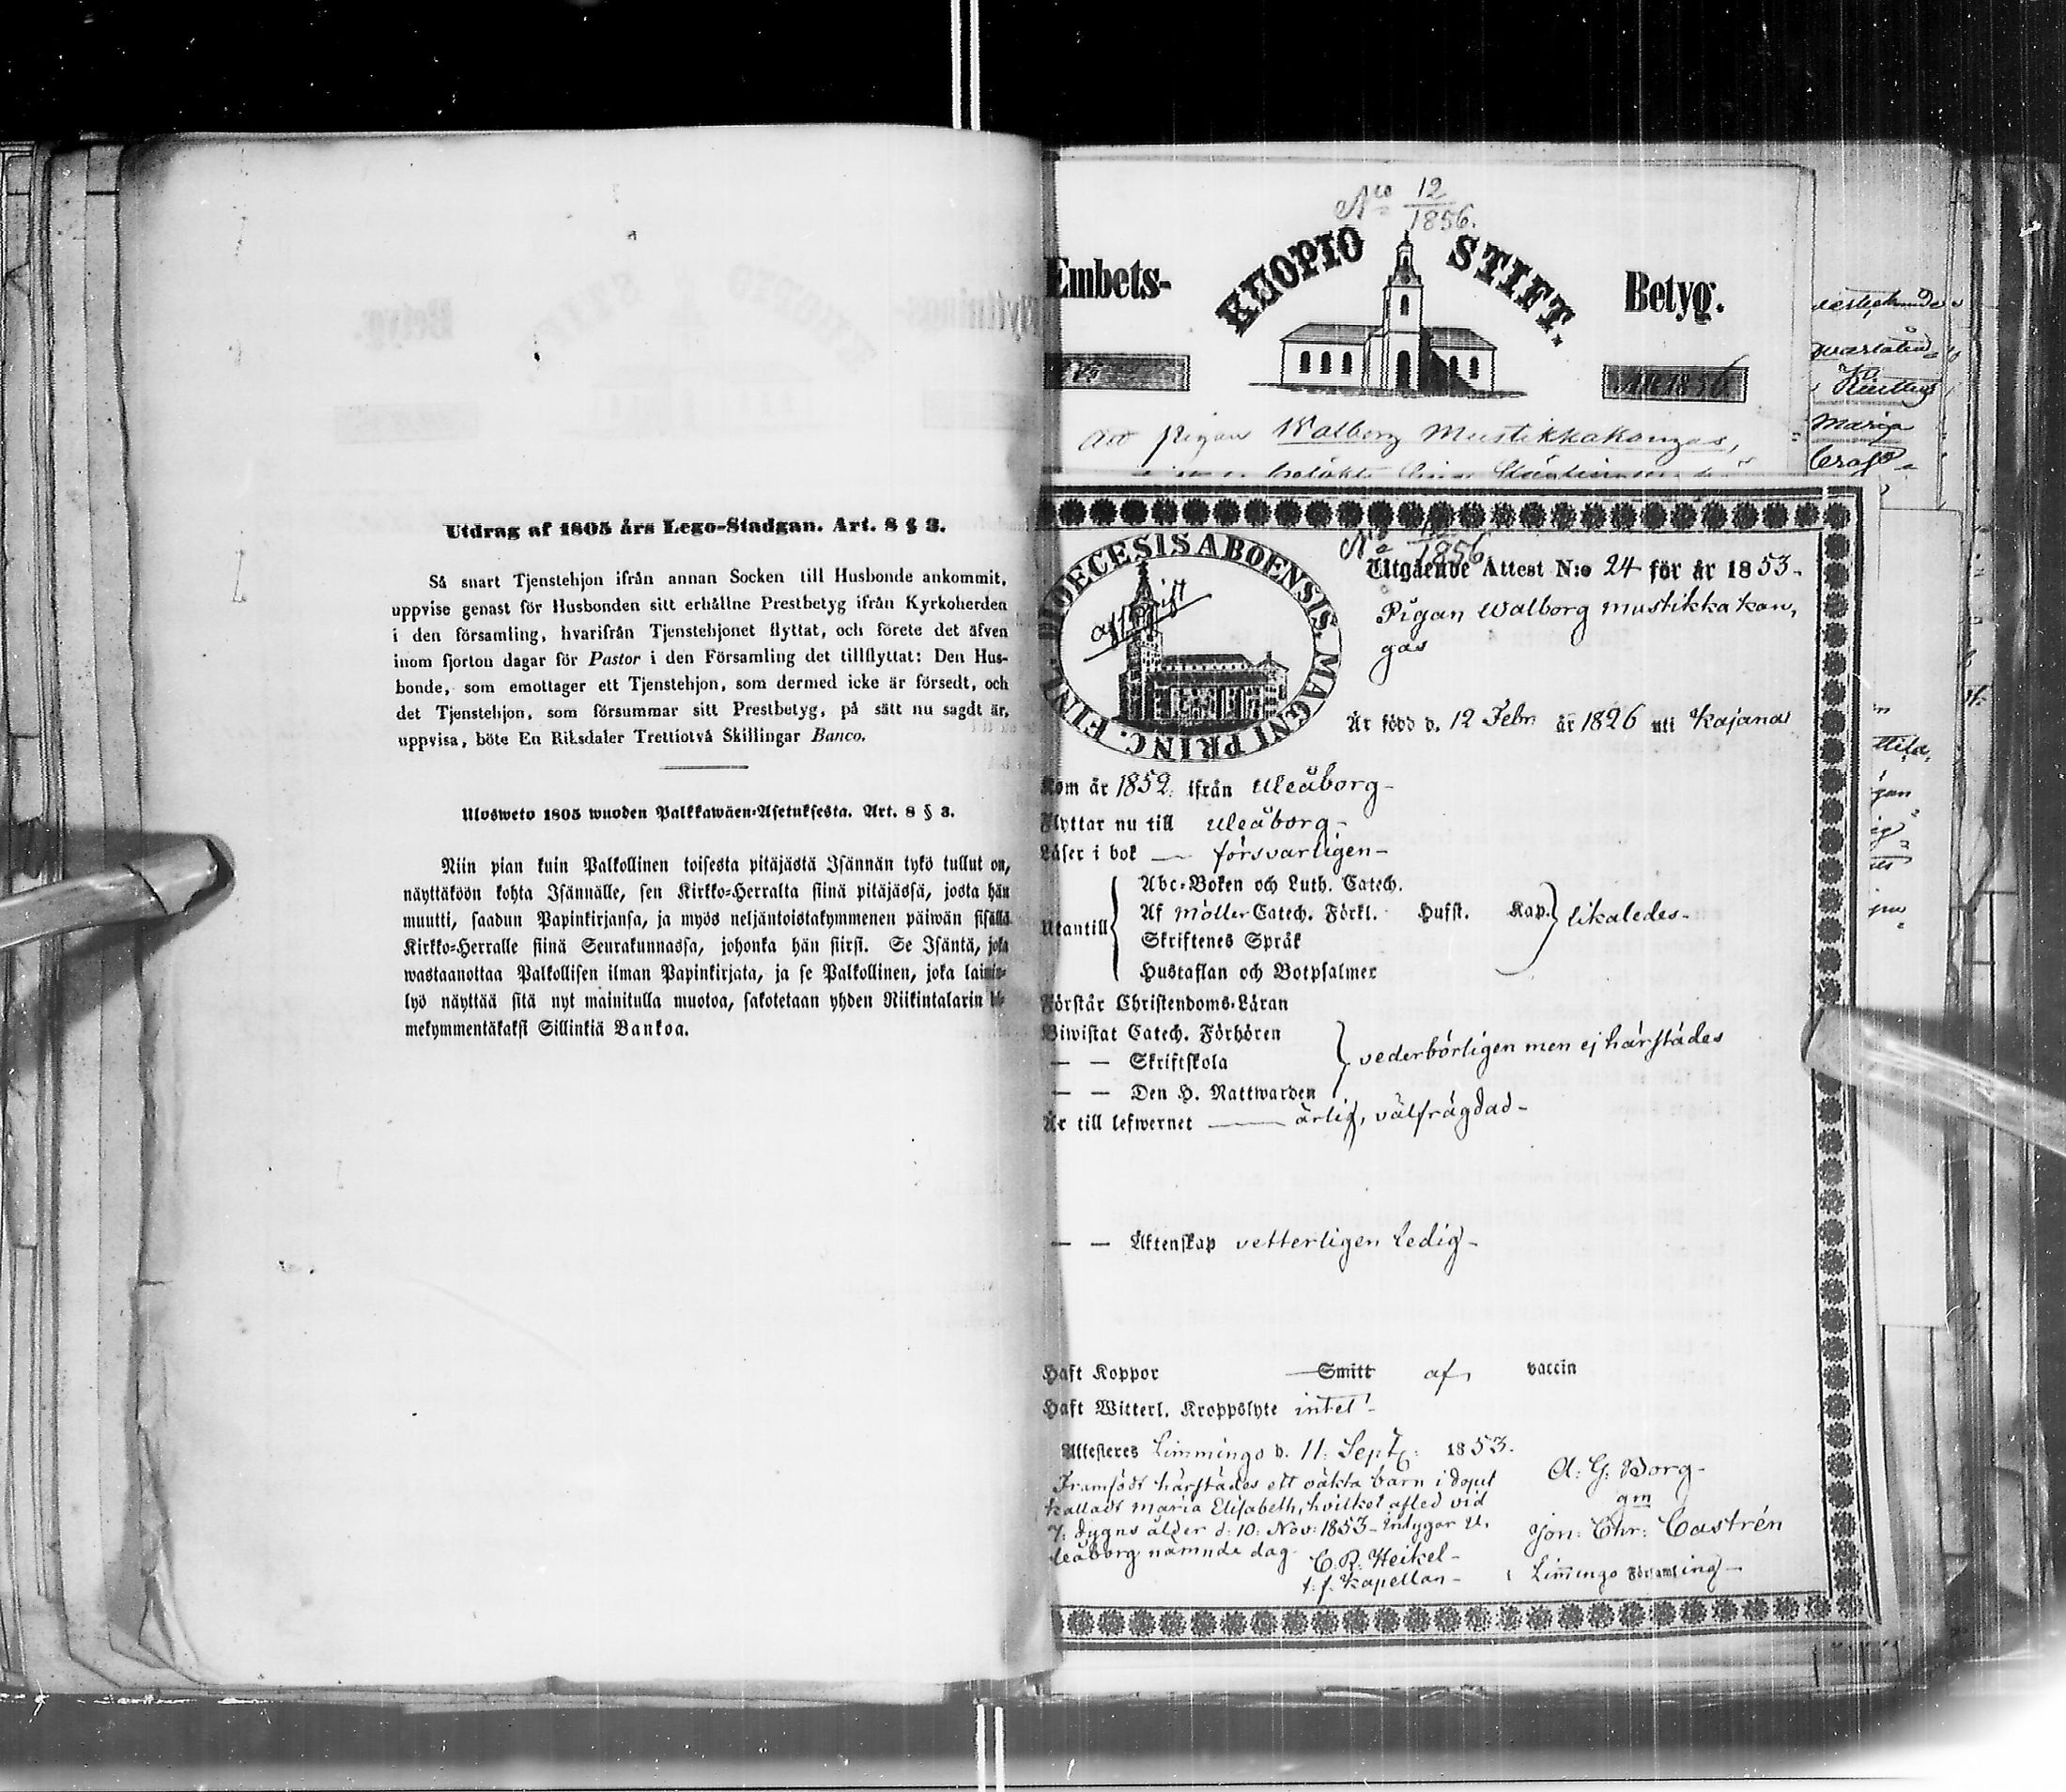 Utdrag af 1805 års Lego-Stadgan. Art. 8 § 3.
Så snart Tjenstehjon ifrån annan Socken till Husbonde ankommit,
uppvise genast för Husbonden sitt erhållne Prestbetyg ifrån Kyrkoherden
i den församling, hvarifrån Tjenstehjonet flyttat, och förete det äfven
inom fjorton dagar för Pastor i den Församling det tillflyttat: Den Hus-
bonde, som emottager ett Tjenstehjon, som dermed icke är försedt, och
det Tjenstehjon, som försummar sitt Prestbetyg, på sätt nu sagdt är,
uppvisa, böte En Riksdaler Trettiotvå Skillingar Banco.
Ulosweto 1805 wuoden Palkkawäen-Asetuksesta. Art. 8 § 3.
Niin pian kuin Palkollinen toisesta pitäjästä Isännän tykö tullut on,
näyttäköön kohta Isännälle, sen Kirkko-Herralta siinä pitäjässä, josta hän
muutti, saadun Papinkirjansa, ja myös neljäntoistakymmenen päiwän sisällä
Kirkko-Herralle siinä Seurakunnassa, johonka hän siirsi. Se Isäntä, joka
wastaanottaa Palkollisen ilman Papinkirjata, ja se Palkollinen, joka laimin-
lyö näyttää sitä nyt mainitulla muotoa, sakotetaan yhden Riikintalarin
mekymmentäkaksi Sillinkiä Bankoa.
No 12
1856.
Embets- KUOPIO STIFT. Betyg.
1856
Att pigan Walborg Mustikkakangas,
No
1856
DIOECESIS ABOENSIS. MAGNI PRINC. FINL.
afskrift
Utgående Attest N:o 24 för år 1853.
Pigan Walborg Mustikkakan,
gas
Är född d. 12 Febr. år 1826 uti Kajana
Kom år 1852. ifrån Uleåborg-
Flyttar nu till Uleåborg-
Läser i bok — försvarligen-
Utantill
Abc-Boken och Luth. Catech.
Af Möller Catech. Förkl. Husst. Kap. likaledes-
Skriftenes Språk
Hustaflan och Botpsalmer
Förstår Christendoms-Läran
Biwistat Catech. Förhören
— — Skriftskola vederbörligen men ej härstädes
— — Den H. Nattwarden
Är till lefwernet — ärlig, välfrägdad-
— — Äktenskap vetterligen ledig-
Haft Koppor Smitt af vaccin
Haft Witterl. Kroppslyte intet-
Attesteres Limmingo d. 11. Sept. 1853.
A: G: Borg-
gm
Jon: Chr: Castrén
i Limingo Församling-
Framfödt härstädes ett oäkta barn i dopet
kalladt Maria Elisabeth, hvilket afled vid
7. dygns ålder d: 10: Nov: 1853- intygar U.
leåborg nämnde dag-
C. R. Heikel-
t. f. Kapellan-
Maria